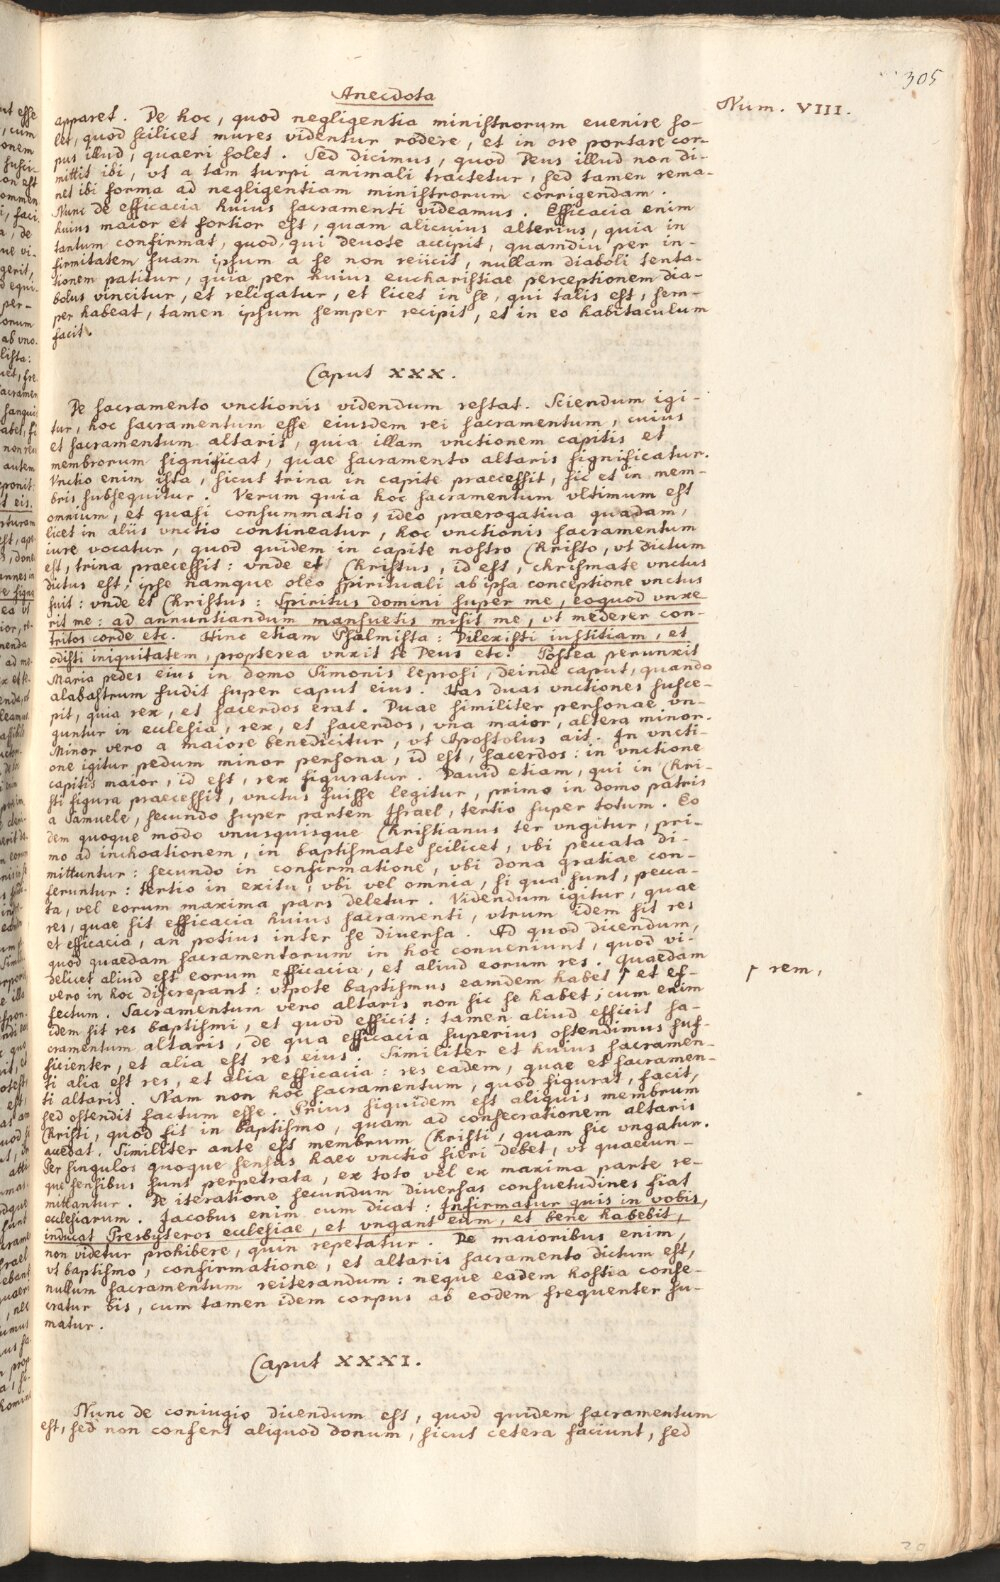 305
Anecdota
Num. VIII.
apparet. De hoc, quod negligentia ministrorum euenire so-
let, quod scilicet mures videntur rodere, et in ore portare cor-
pus illud, quaeri solet. Sed dicimus, quod Deus illud non di-
mittit ibi, vt a tam turpi animali tractetur, sed tamen rema-
net ibi forma ad negligentiam ministrorum corrigendam.
Nunc de efficacia huius sacramenti videamus. Efficacia enim
huius maior et fortior est, quam alicuius alterius, quia in
tantum confirmat, quod, qui deuote accipit, quamdiu per in-
firmitatem suam ipsum a se non reiicit, nullam diaboli tenta-
tionem patitur, quia per huius eucharistiae perceptionem dia-
bolus vincitur, et religatur, et licet in se, qui talis est, sem-
per habeat, tamen ipsum semper recipit, et in eo habitaculum
facit.
Caput XXX.
De sacramento vnctionis videndum restat. Sciendum igi-
tur, hoc sacramentum esse eiusdem rei sacramentum, cuius
et sacramentum altaris, quia illam vnctionem capitis et
membrorum significat, quae sacramento altaris significatur.
Vnctio enim ista, sicut trina in capite praecessit, sic et in mem-
bris subsequitur. Verum quia hoc sacramentum vltimum est
omnium, et quasi consummatio, ideo praerogatiua quadam,
licet in aliis vnctio contineatur, hoc vnctionis sacramentum
iure vocatur, quod quidem in capite nostro Christo, vt dictum
est, trina praecessit: vnde et Christus, id est, chrismate vnctus
dictus est; ipse namque oleo spirituali ab ipsa conceptione vnctus
fuit: vnde et Christus: Spiritus domini super me, eoquod vnxe
rit me: ad annuntiandum mansuetis misit me, vt mederer con-
tritos corde etc. Hinc etiam Psalmista: Dilexisti iustitiam, et
odisti iniquitatem, propterea vnxit te Deus etc. Postea perunxit
Maria pedes eius in domo Simonis leprosi, deinde caput, quando
alabastrum fudit super caput eius. Has duas vnctiones susce-
pit, quia rex, et sacerdos erat. Duae similiter personae vn-
guntur in ecclesia, rex, et sacerdos, vna maior, altera minor.
Minor vero a maiore benedicitur, vt Apostolus ait. In vncti-
one igitur pedum minor persona, id est, sacerdos: in vnctione
capitis maior, id est, rex figuratur. Dauid etiam, qui in Chri-
sti figura praecessit, vnctus fuisse legitur, primo in domo patris
a Samuele, secundo super partem Israel, tertio super totum. Eo
dem quoque modo vnusquisque Christianus ter vngitur, pri-
mo ad inchoationem, in baptismate scilicet, vbi peccata di-
mittuntur: secundo in confirmatione, vbi dona gratiae con-
feruntur: tertio in exitu, vbi vel omnia, si qua sunt, pecca-
ta, vel eorum maxima pars deletur. Videndum igitur, quae
res, quae sit efficacia huius sacramenti, vtrum idem sit res
et efficacia, an potius inter se diuersa. Ad quod dicendum,
quod quaedam sacramentorum in hoc conueniunt, quod vi-
delicet aliud est eorum efficacia, et aliud eorum res. Quaedam
vero in hoc discrepant: vtpote baptismus eamdem habet ┌ et ef-
┌ rem,
fectum. Sacramentum vero altaris non sic se habet; cum enim
idem sit res baptismi, et quod efficit: tamen aliud efficit sa-
cramentum altaris, de qua efficacia superius ostendimus suf-
ficienter, et alia est res eius. Similiter et huius sacramen-
ti alia est res, et alia efficacia: res eadem, quae et sacramen-
ti altaris. Nam non hoc sacramentum, quod figurat, facit,
sed ostendit factum esse. Prius siquidem est aliquis membrum
Christi, quod fit in baptismo, quam ad consecrationem altaris
accedat. Similiter ante est membrum Christi, quam sic vngatur.
Per singulos quoque sensus haec vnctio fieri debet, vt quaecun-
que sensibus sunt perpetrata, ex toto vel ex maxima parte re-
mittantur. De iteratione secundum diuersas consuetudines fiat
ecclesiarum. Jacobus enim cum dicat: Infirmatur quis in vobis,
inducat Presbyteros ecclesiae, et vngant eum, et bene habebit,
non videtur prohibere, quin repetatur. De maioribus enim,
vt baptismo, confirmatione, et altaris sacramento dictum est,
nullum sacramentum reiterandum: neque eadem hostia conse-
cratur bis, cum tamen idem corpus ab eodem frequenter su-
matur.
Caput XXXI.
Nunc de coniugio dicendum est, quod quidem sacramentum
est, sed non confert aliquod donum, sicut cetera faciunt, sed